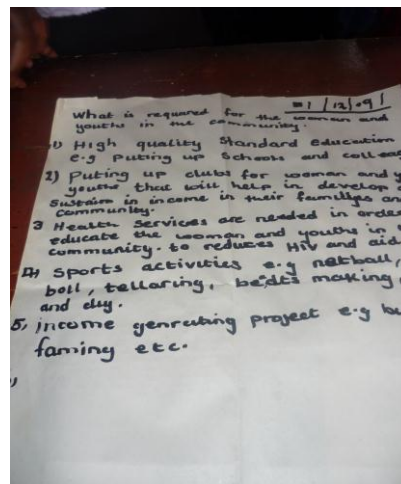 1/12/09
What is required for the woman and
youths in the community.
1) High quality Standard education
e.g Puting up Schools and colleag
2) Puting up clubs for woman and y
youths that will help in develop a
Sustain in income in their familys an
community.
3 Health Services are needed in order
educate the woman and youths in
community. to reduces Hiv and aid
4) Sports activities e.g netball,
boll, tellaring, making,
and
5, income genrating project e.g bu
faming etc.